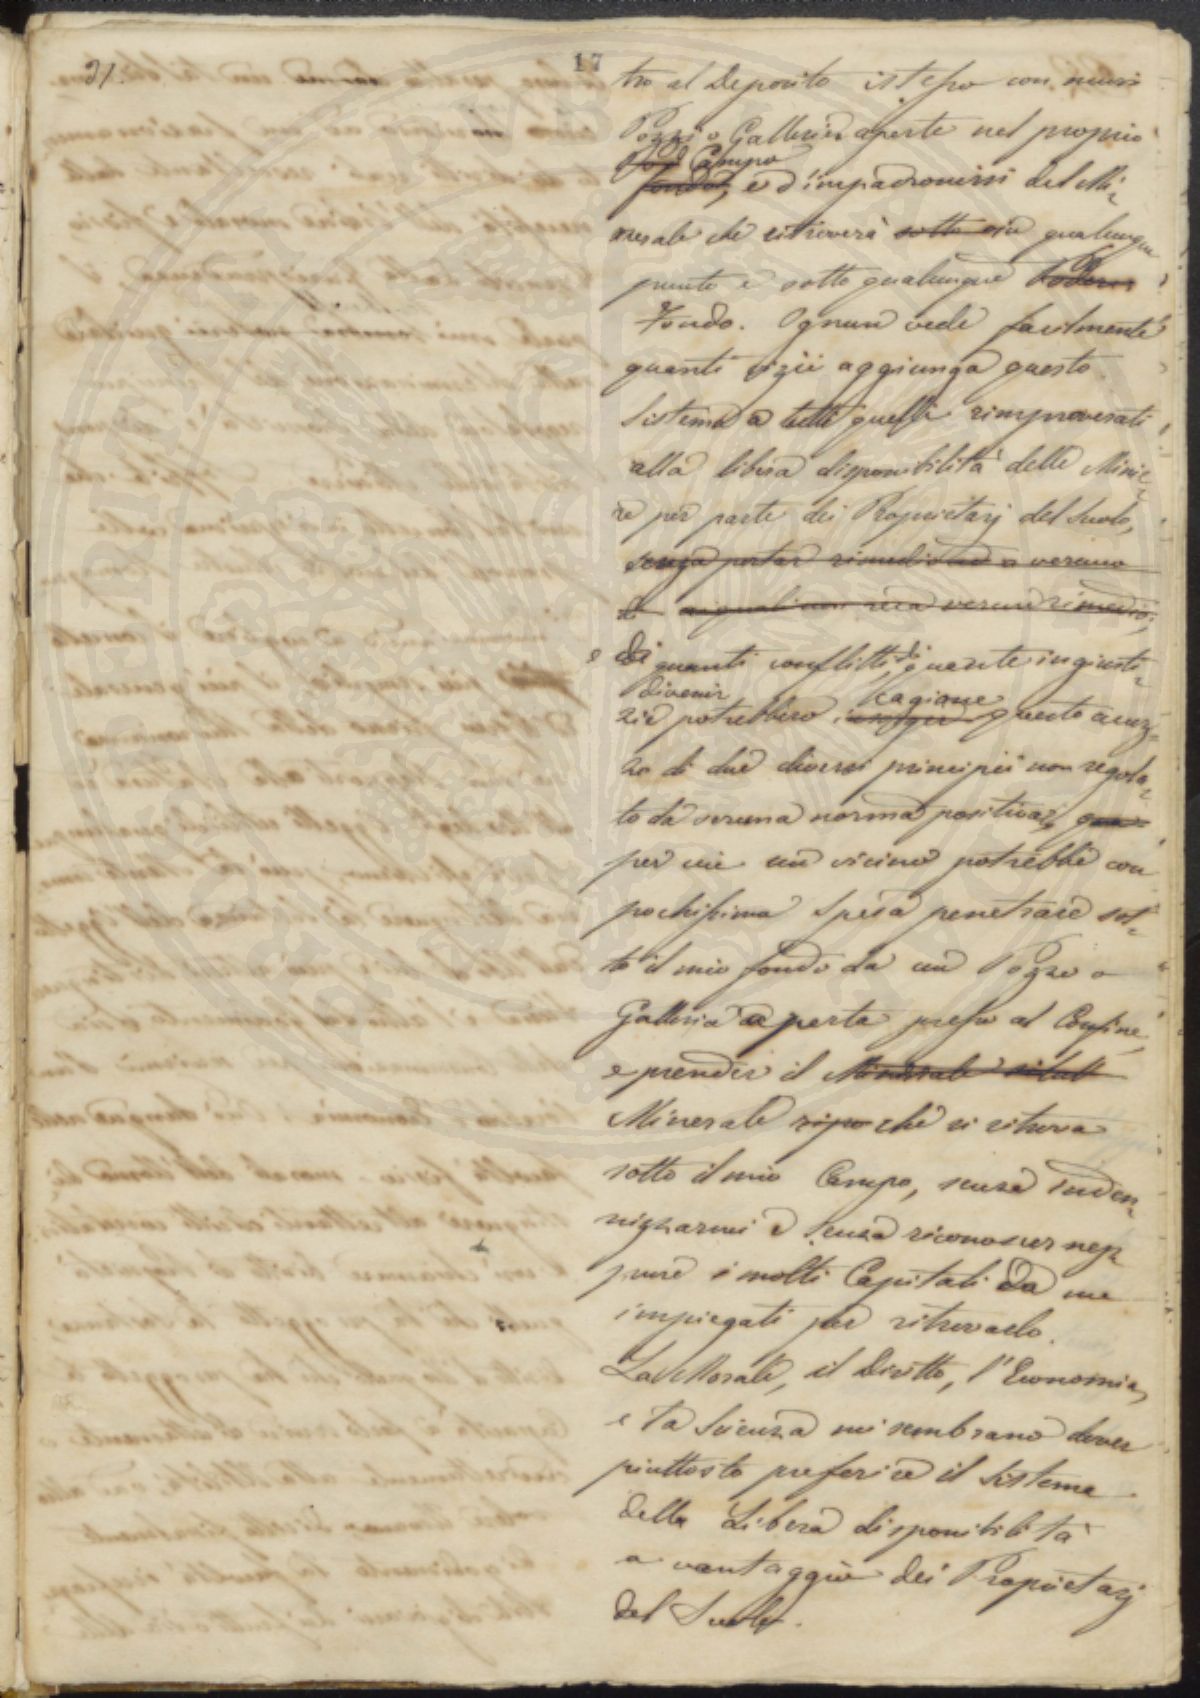 31.
17
tro al Deposito istesso con nuovi
Pozzi o Gallerie aperte nel proprio
Campo
fondo, e d'impadronirsi del Mi=
nerale che ritroverà sotto qualunque
punto e sotto qualunque
Fondo. Ognun vede facilmente
quanti vizii aggiunga questo
Sistema a tutti quelli rimproverati
alla libera disponibilità delle Minie=
re per parte dei Proprietarj del Suolo,
senza portar rimedio ad a veruno
di ai quali non reca verun rimedio,
e Di quanti conflitti, di quante ingiusti=
divenir cagione
zie potrebbero insorger questo acuz=
zo di due diversi principii non regola=
to da veruna norma positiva;
per cui un vicino potrebbe con
pochissima spesa penetrare sot=
to il mio fondo da un Pozzo o
Galleria aperta presso al Confine,
e prender il Minerale
Minerale ripo che si ritrova
sotto il mio Campo, senza inden=
nizzarmi e senza riconoscer nep=
pure i molti Capitali da me
impiegati per ritrovarlo.
La Morale, il Diritto, l'Economia,
e la Scienza mi sembrano dover
piuttosto preferire il Sistema
della Libera disponibilità
a vantaggio dei Proprietarj
del Suolo.